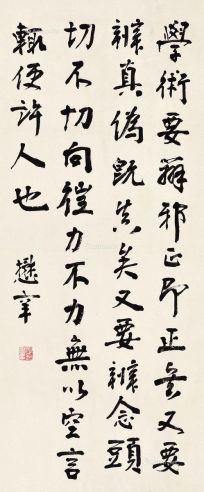 學術要辨邪正即正矣又要
辨真偽既真矣又要辨念頭
切不切向往力不力無以空言
輒便許人也
懋辛